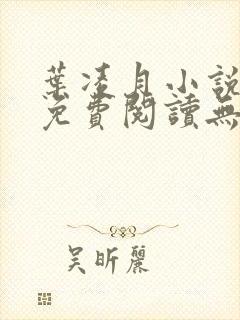 葉凌月小說
免費閱讀無
吳昕麗